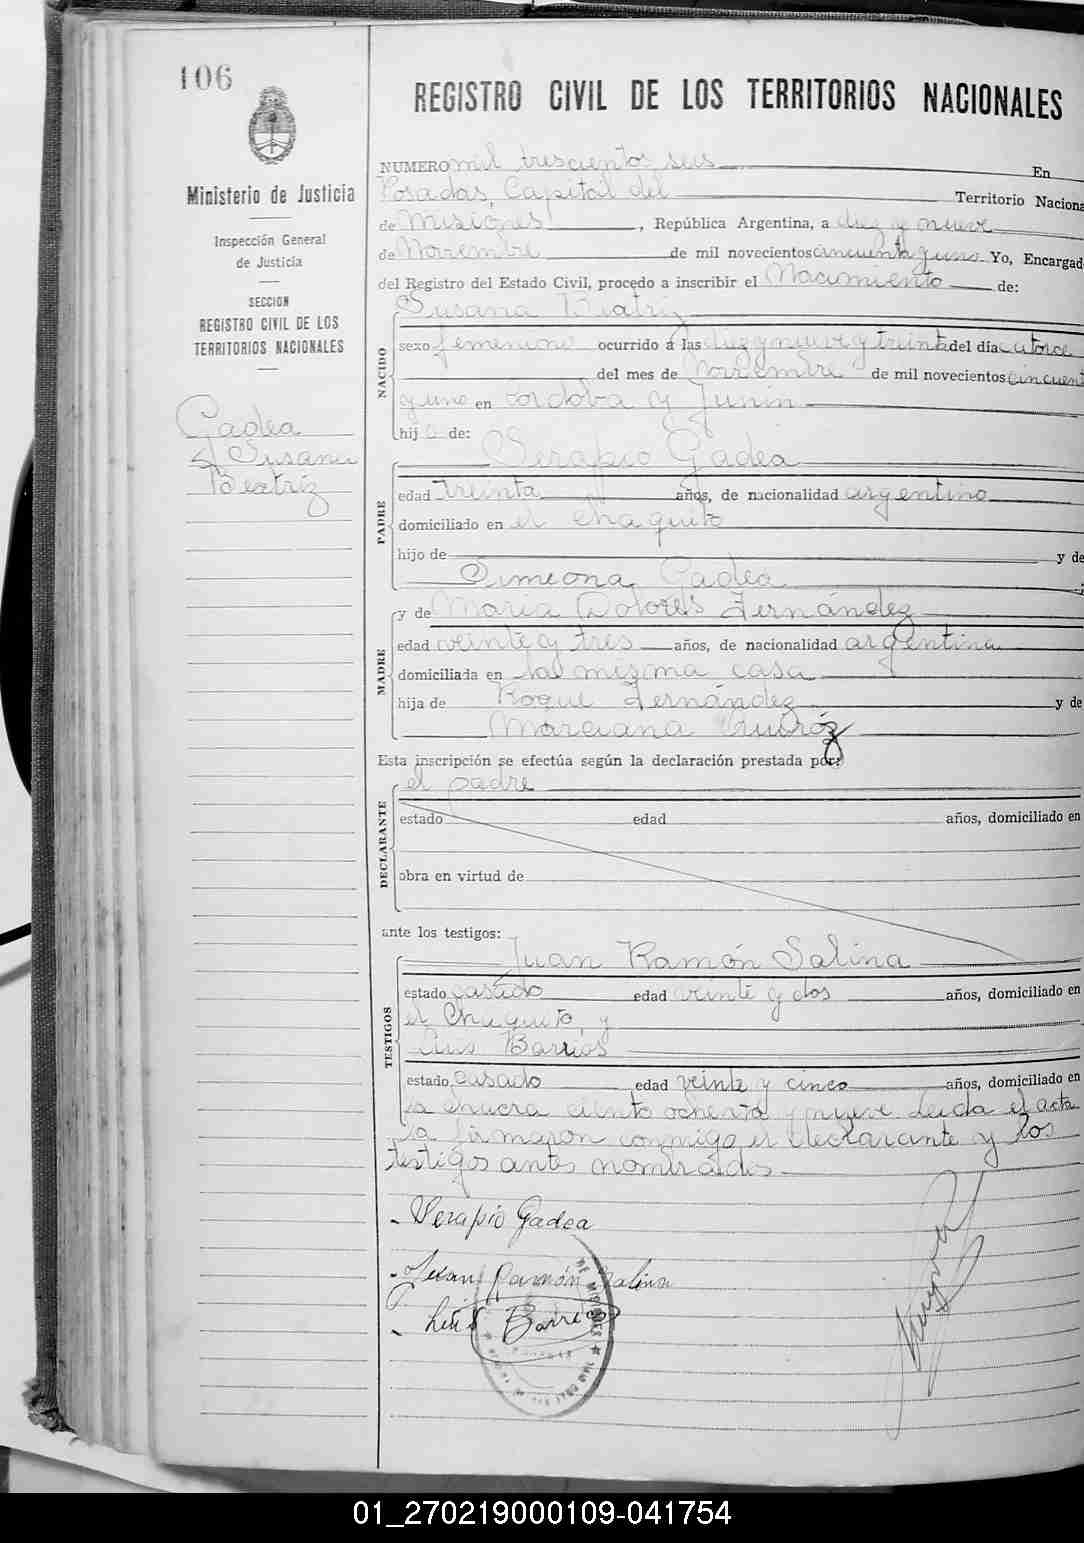 106
REGISTRO CIVIL DE LOS TERRITORIOS NACIONALES
Ministerio de Justicia
Inspección General
de Justicia
SECCION
REGISTRO CIVIL DE LOS
TERRITORIOS NACIONALES
Gadea
Susana
Beatriz
NUMERO mil trescientos seis En
Posadas, Capital del Territorio Naciona
de Misiones, República Argentina, a diez y nueve
de Noviembre de mil novecientos cincuenta y uno Yo, Encargad
del Registro del Estado Civil, procedo a inscribir el Nacimiento de:
NACIDO
Susana Beatriz
sexo femenino ocurrido á las diez y nueve y treinta del día catorce
del mes de Noviembre de mil novecientos cincuent
y uno en Córdoba y Junín
hij a de:
PADRE
Serapio Gadea
edad treinta años, de nacionalidad argentino
domiciliado en el Chaquito
hijo de y de
Simeona Gadea
MADRE
y de María Dolores Fernández
edad veinte y tres años, de nacionalidad argentina
domiciliada en la misma casa
hija de Roque Fernández y de
Marciana Quiróz
Esta inscripción se efectúa según la declaración prestada por:
el padre
DECLARANTE
estado edad años, domiciliado en
obra en virtud de
ante los testigos:
TESTIGOS
Juan Ramón Salina
estado casado edad veinte y dos años, domiciliado en
el Chaquito, y
Luis Barrios
estado casado edad veinte y cinco años, domiciliado en
la chacra ciento ochenta y nueve Leida el acta
la firmaron conmigo el declarante y los
testigos antes nombrados
Serapio Gadea
Juan Ramón Salina
Luis Barrios
DE MISIONES
01_270219000109-041754